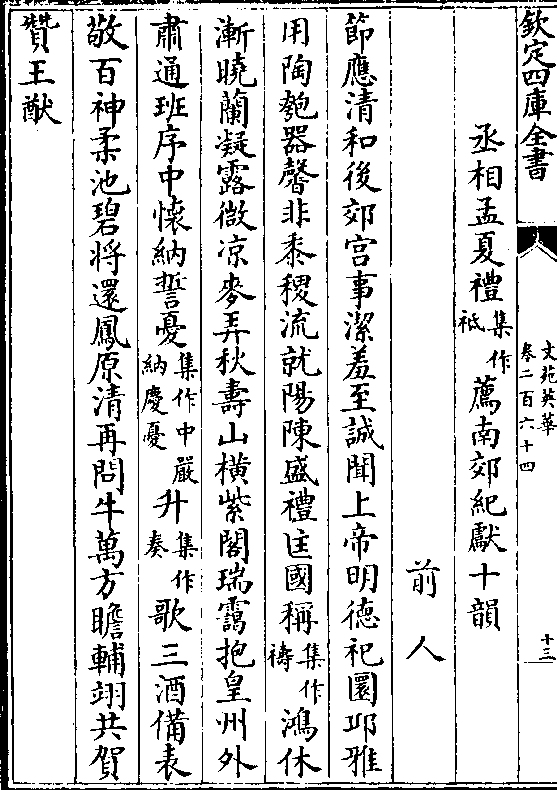 欽定四庫全書
文苑英華
卷二百六十四
十三
丞相孟夏禮集作祗薦南郊紀獻十韻
前人
節應清和後郊宫事潔羞至誠聞上帝明德祀圜邱雅
用陶匏器馨非黍稷流就陽陳盛禮匡國稱集作禱鴻休
漸曉蘭凝露微凉麥弄秋壽山横紫閣瑞靄抱皇州外
肅通班序中懷納誓憂集作中嚴納慶憂升集作奏歌三酒備表
敬百神柔池碧将還鳳原清再問牛萬方瞻輔翊共賀
贊王猷